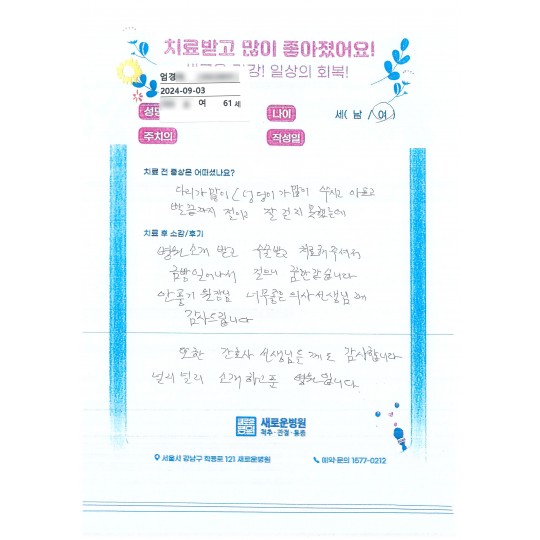 치료받고 많이 좋아졌어요!
강! 일상의 회복!
엄경
2024-09-03
여 61세
나이
세( 남 / 여 )
주치의
작성일
치료 전 증상은 어떠셨나요?
다리가 많이 / 엉덩이가 많이 쑤시고 아프고
발끝까지 절이고 잘 걷지 못했는데
치료 후 소감/후기
병원 소개 받고 수술받고 치료해주셔서
금방 일어나서 걸으니 꿈만 같습니다
안풍기 원장님 너무 훌륭 의사 선생님께
감사드립니다
또한 간호사 선생님들께도 감사합니다
널리 널리 소개하고픈 병원입니다.
새로운병원
척추·관절·통증
서울시 강남구 학동로 121 새로운병원
예약·문의 1577-0212